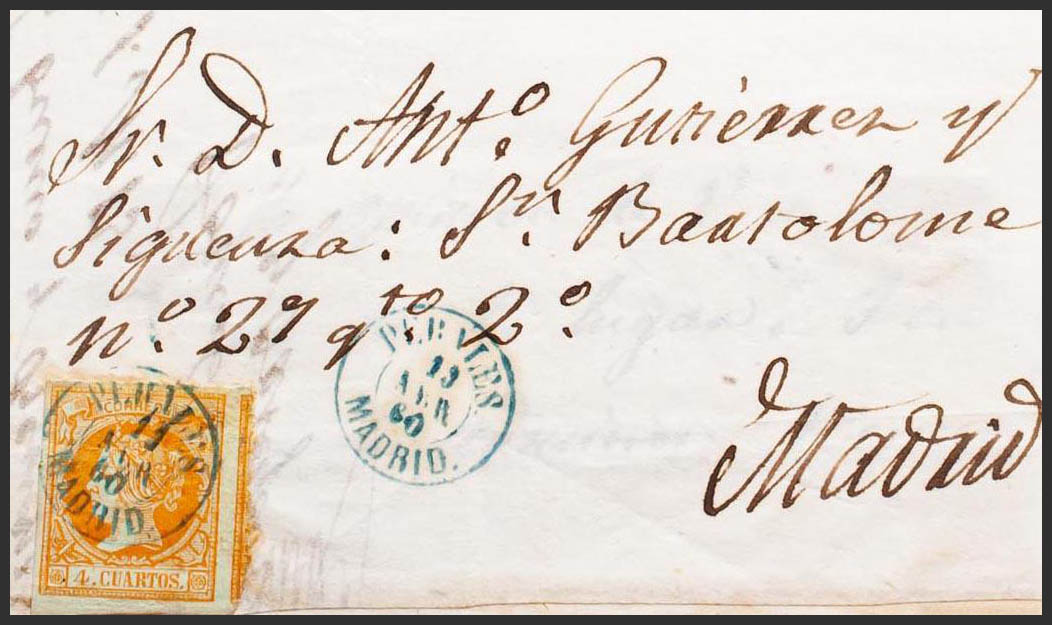 Sr. D. Antº. Gutierrez y
Siguenza: Sn. Bartolome
nº. 27 qto 2º.
Madrid
PERALES
13
ABR
60
MADRID.
PERALES
13
ABR
60
MADRID.
4. CUARTOS.